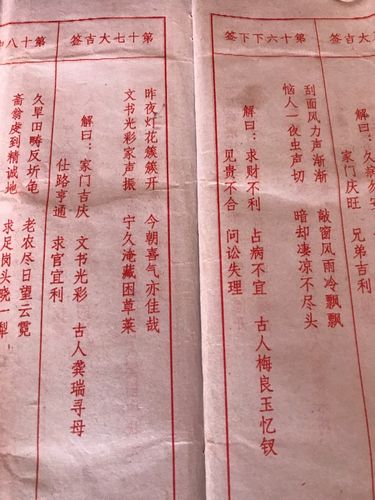 大吉签
家门庆旺 兄弟吉利
第十六下下签
刮面风力声渐渐 敲窗风雨冷飘飘
恼人一夜虫声切 暗却凄凉不尽头
解曰：求财不利 占病不宜 古人梅良玉忆钗
见贵不合 问讼失理
第十七大吉签
昨夜灯花簇簇开 今朝喜气亦佳哉
文书光彩家声振 宁久淹藏困草莱
解曰：家门吉庆 文书光彩 古人龚瑞寻母
仕路亨通 求官宜利
第十八
久旱田畴反坼龟 老农尽日望云霓
翁虔到精诚地 求足岗头晓一犁